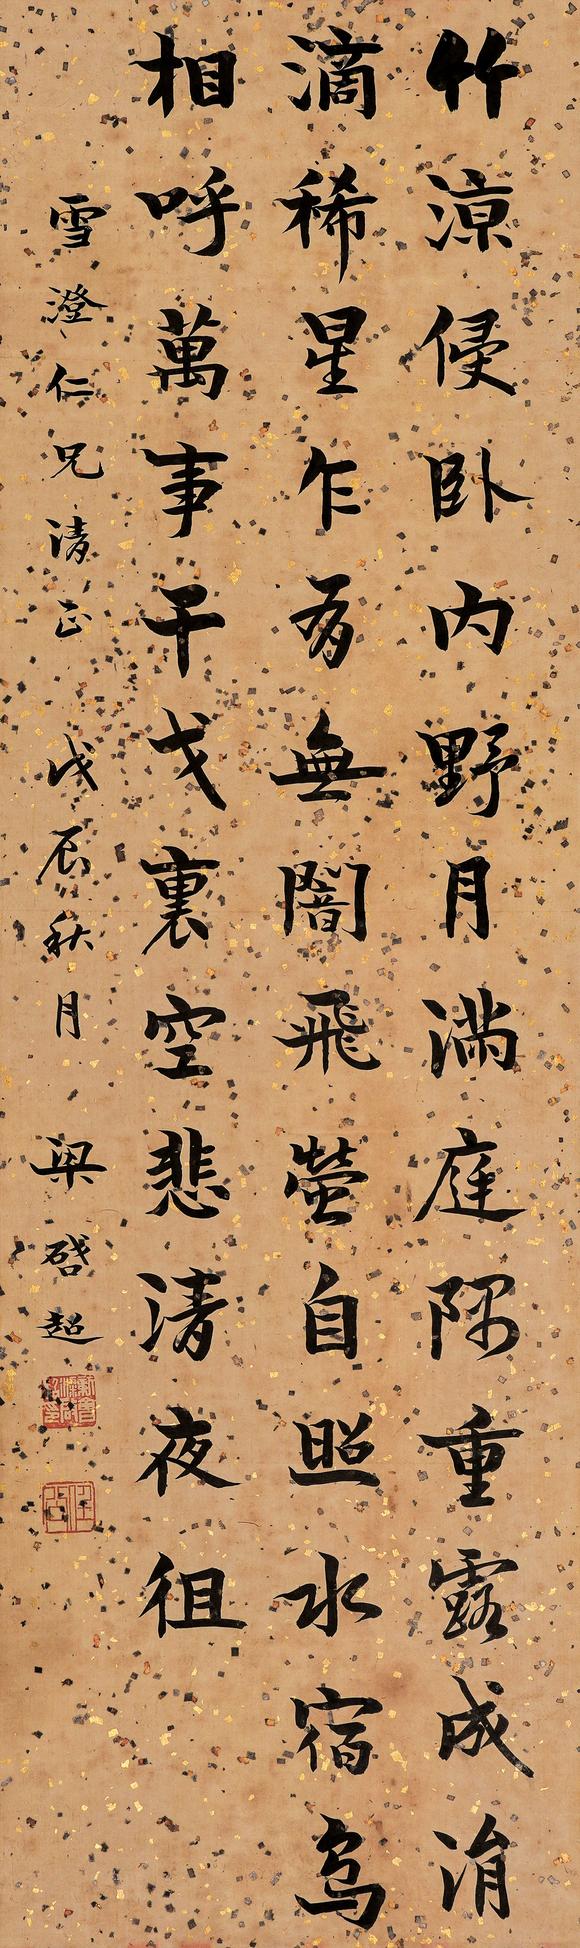 竹涼侵臥内野月滿庭隅重露成涓
滴稀星乍有無闇飛螢自照水宿鳥
相呼萬事干戈裏空悲清夜徂
雪澄仁兄清正 戊辰秋月 梁啓超